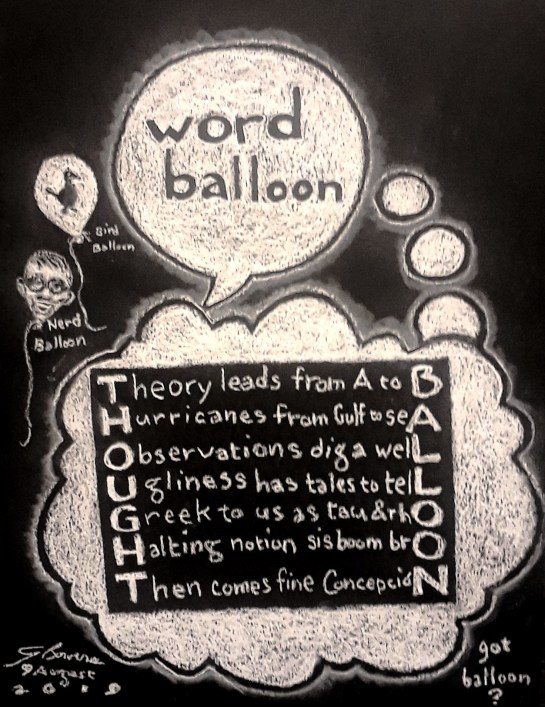 word
balloon
Bird
Balloon
Nerd
Balloon
Theory leads from A to B
Hurricanes from Gulf to seA
Observations dig a welL
Ugliness has tales to telL
Greek to us as tau & rhO
Halting notion sis boom brO
Then comes fine ConcepcióN
9 August
2019
got
balloon
?